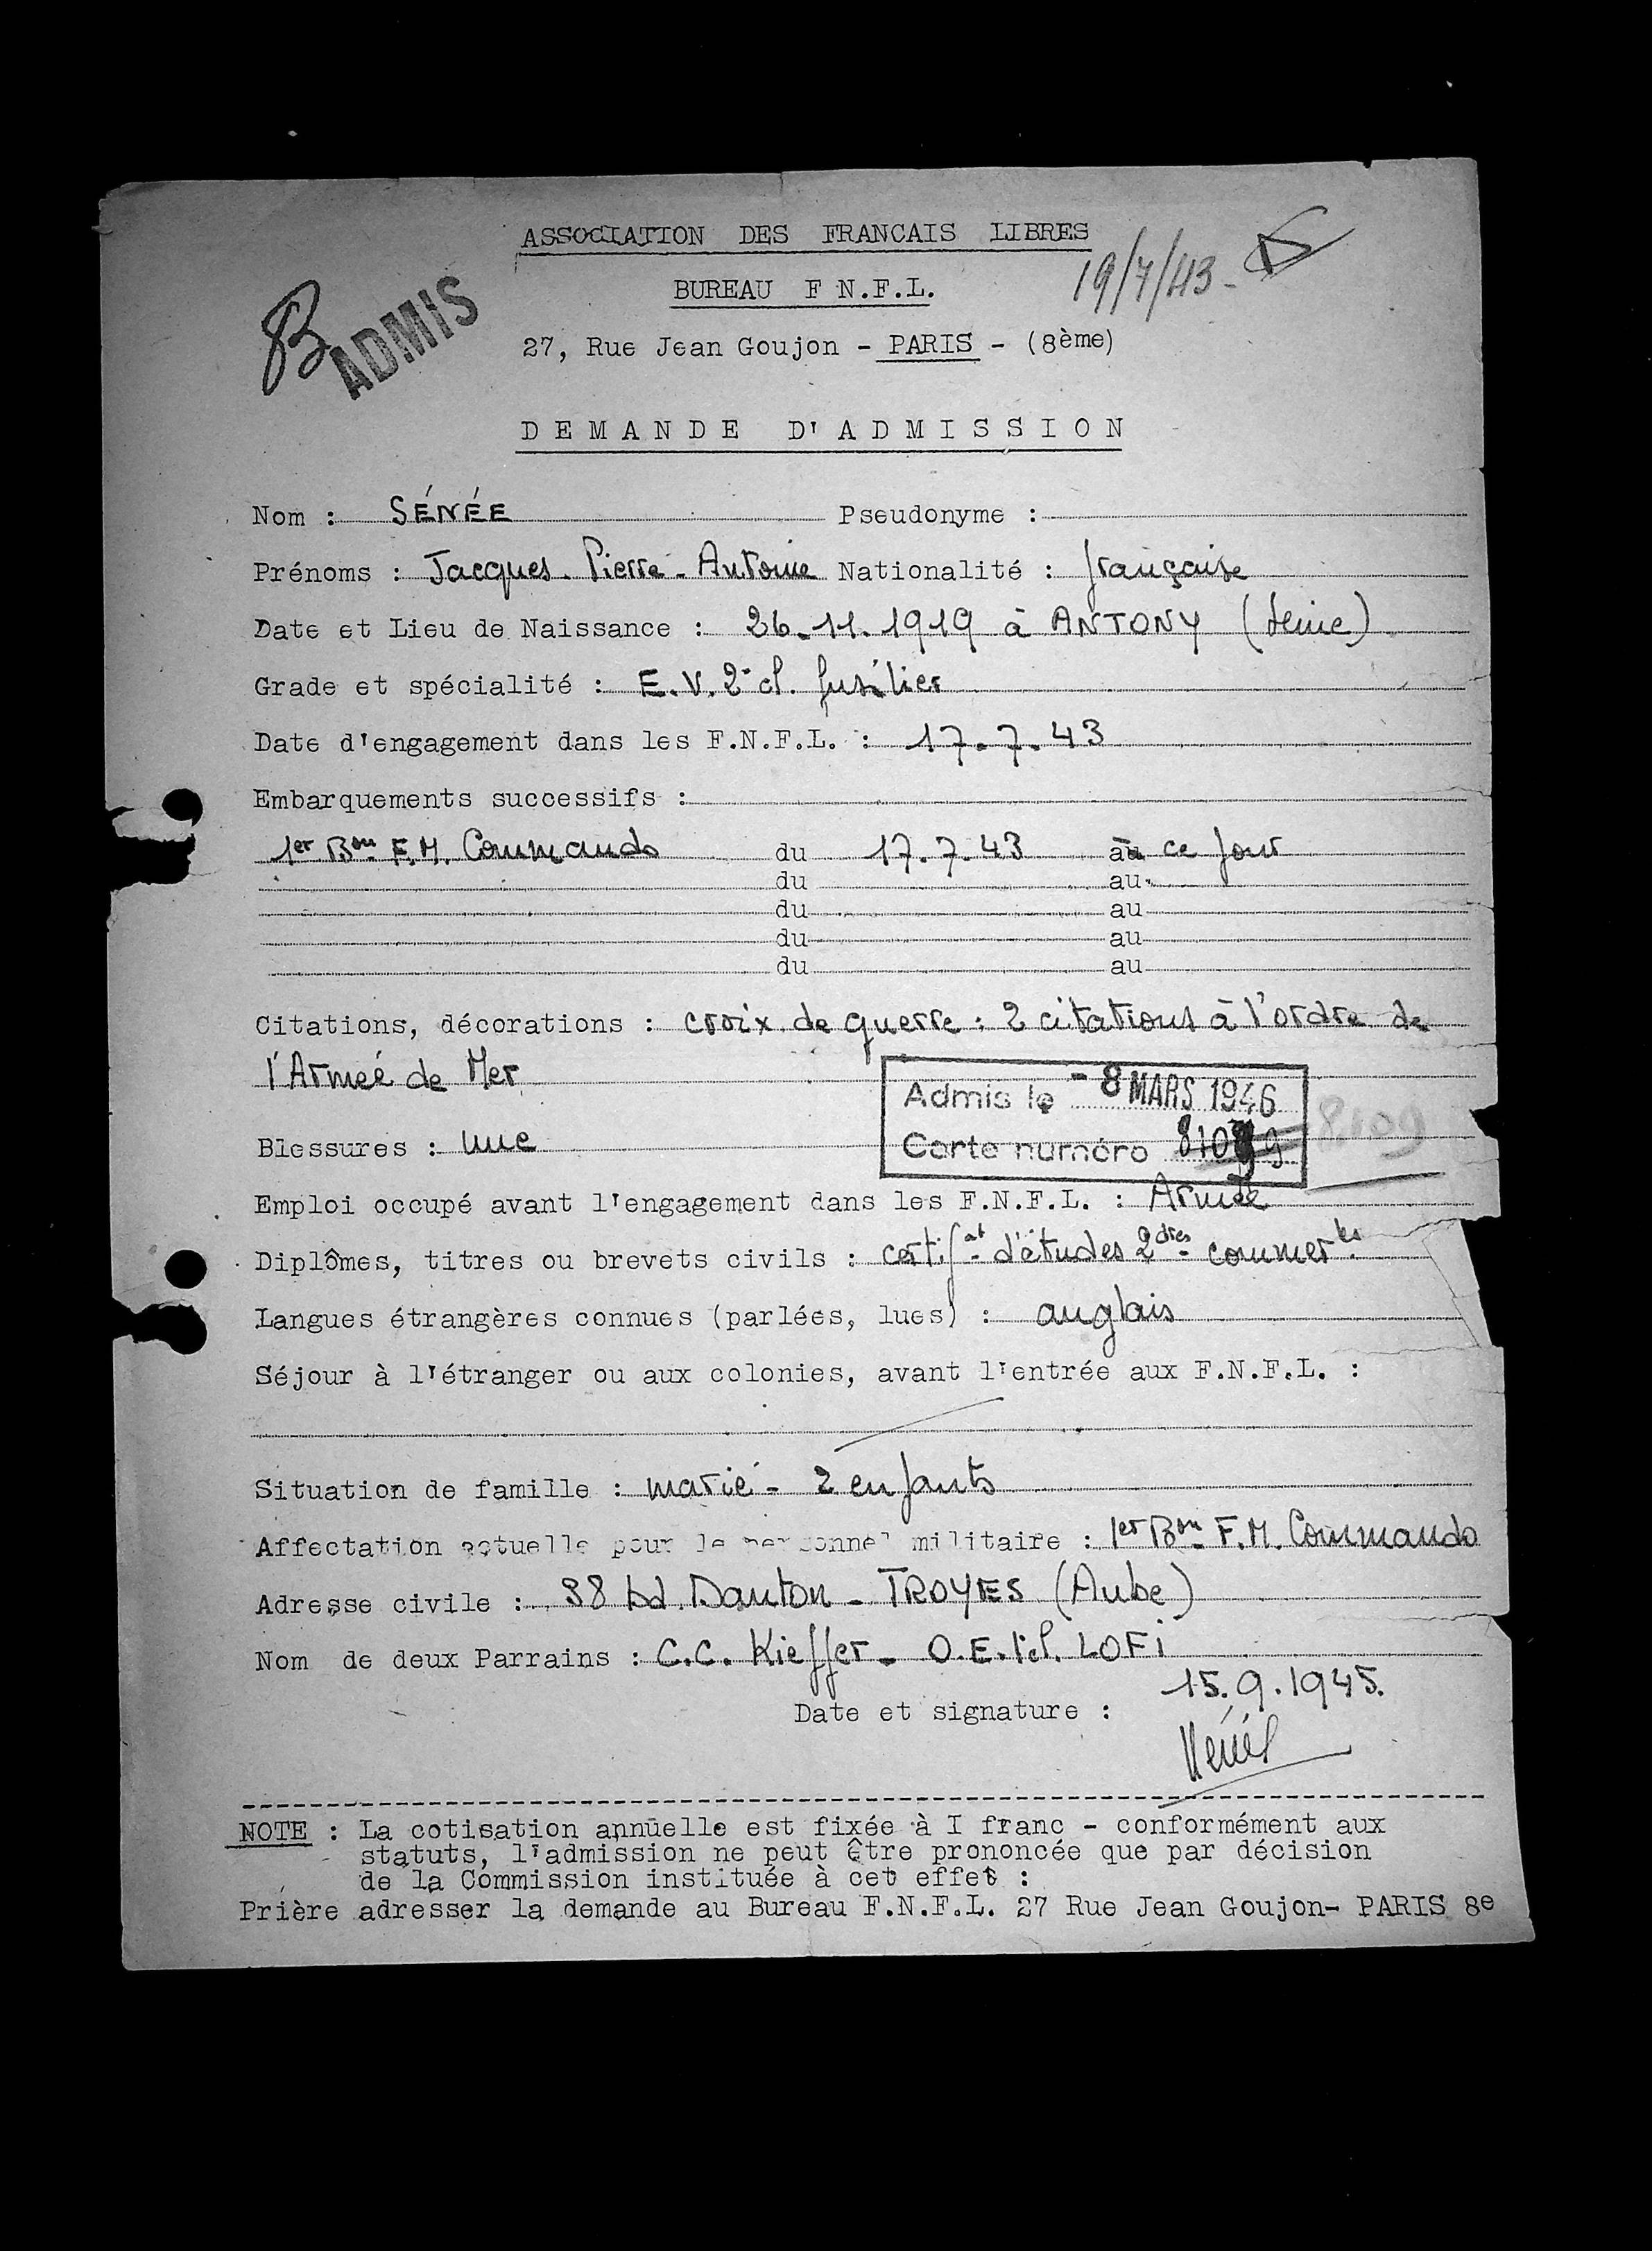 ASSOCIATION DES FRANCAIS LIBRES
BUREAU F N.F.L.
19/7/43 -
B ADMIS
27, Rue Jean Goujon - PARIS - (8ème)
DEMANDE D'ADMISSION
Nom : SÉNÉE Pseudonyme :
Prénoms : Jacques - Pierre - Antoine Nationalité : française
Date et Lieu de Naissance : 26.11.1919 à ANTONY (Seine)
Grade et spécialité : E.V. 2e cl. fusilier
Date d'engagement dans les F.N.F.L. : 17.7.43
Embarquements successifs :
1er Bon F.M. Commando du 17.7.43 au à ce jour
du au
du au
du au
du au
Citations, décorations : croix de guerre : 2 citations à l'ordre de
l'Armeé de Mer
Admis le - 8 MARS 1946
Carte numéro 8109
Blessures : une
Emploi occupé avant l'engagement dans les F.N.F.L. : Armée
Diplômes, titres ou brevets civils : certifat d'études 2dres commerles
Langues étrangères connues (parlées, lues) : anglais
Séjour à l'étranger ou aux colonies, avant l'entrée aux F.N.F.L. :
Situation de famille : marié - 2 enfants
Affectation actuelle pour le personnel militaire : 1er Bon F.M. Commando
Adresse civile : 88 bd. Danton - TROYES (Aube)
Nom de deux Parrains : C.C. Kieffer - O.E. 1cl. LOFI
15.9.1945.
Date et signature :
Sénée
NOTE : La cotisation annuelle est fixée à I franc - conformément aux
statuts, l'admission ne peut être prononcée que par décision
de la Commission instituée à cet effet :
Prière adresser la demande au Bureau F.N.F.L. 27 Rue Jean Goujon- PARIS 8e